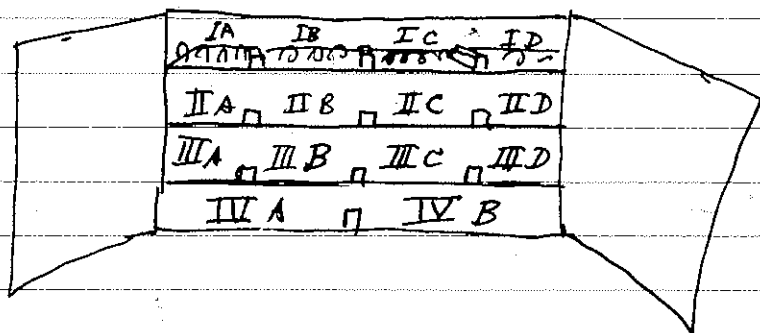 IA IB IC ID
IIA IIB IIC IID
IIIA IIIB IIIC IIID
IV A IV B